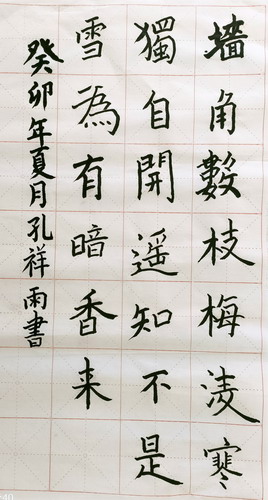 墙角數枝梅凌寒
獨自開遥知不是
雪為有暗香来
癸卯年夏月孔祥雨書